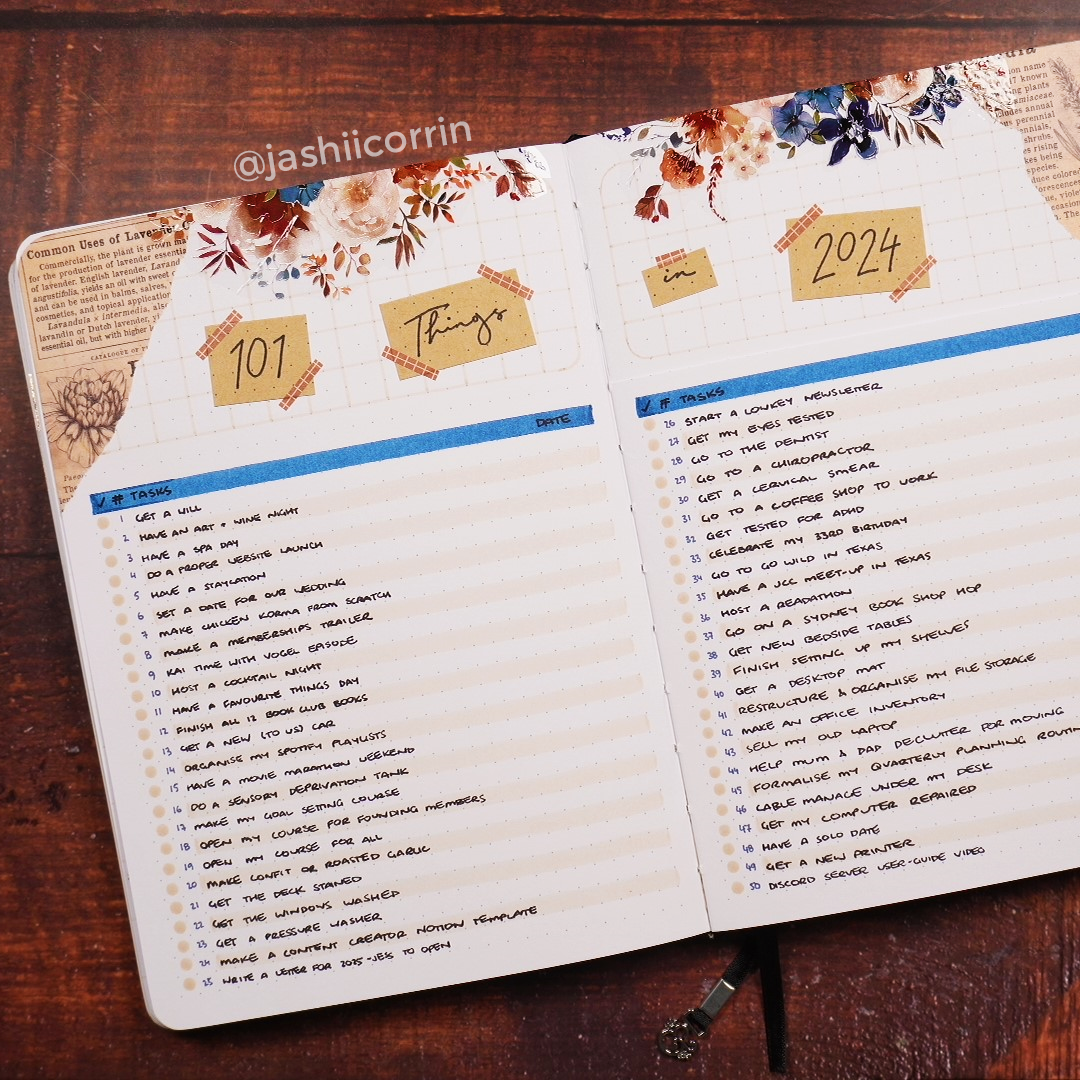 @jashiicorrin
Common Uses of Lavender
Commercially, the plant is grown
for the production of lavender essential
of lavender. English lavender,
angustifolia, yields an oil with sweet
and can be used in balms, salves,
cosmetics, and topical
Lavandula × intermedia, also
lavandin or Dutch lavender,
essential oil, but with higher
CATALOGUE OF
101
Things
✓ # TASKS DATE
1 GET A WILL
2 HAVE AN ART + WINE NIGHT
3 HAVE A SPA DAY
4 DO A PROPER WEBSITE LAUNCH
5 HAVE A STAYCATION
6 SET A DATE FOR OUR WEDDING
7 MAKE CHICKEN KORMA FROM SCRATCH
8 MAKE A MEMBERSHIPS TRAILER
9 KAI TIME WITH VOGEL EPISODE
10 HOST A COCKTAIL NIGHT
11 HAVE A FAVOURITE THINGS DAY
12 FINISH ALL 12 BOOK CLUB BOOKS
13 GET A NEW (TO US) CAR
14 ORGANISE MY SPOTIFY PLAYLISTS
15 HAVE A MOVIE MARATHON WEEKEND
16 DO A SENSORY DEPRIVATION TANK
17 MAKE MY GOAL SETTING COURSE
18 OPEN MY COURSE FOR FOUNDING MEMBERS
19 OPEN MY COURSE FOR ALL
20 MAKE CONFIT OR ROASTED GARLIC
21 GET THE DECK STAINED
22 GET THE WINDOWS WASHED
23 GET A PRESSURE WASHER
24 MAKE A CONTENT CREATOR NOTION TEMPLATE
25 WRITE A LETTER FOR 2025-JESS TO OPEN
in
2024
ion name
47 known
ing plants
Lamiaceae.
cludes annual
perennial
shrubs.
rising
being
species.
✓ # TASKS
26 START A LOWKEY NEWSLETTER
27 GET MY EYES TESTED
28 GO TO THE DENTIST
29 GO TO A CHIROPRACTOR
30 GET A CERVICAL SMEAR
31 GO TO A COFFEE SHOP TO WORK
32 GET TESTED FOR ADHD
33 CELEBRATE MY 33RD BIRTHDAY
34 GO TO GO WILD IN TEXAS
35 HAVE A JCC MEET-UP IN TEXAS
36 HOST A READATHON
37 GO ON A SYDNEY BOOK SHOP HOP
38 GET NEW BEDSIDE TABLES
39 FINISH SETTING UP MY SHELVES
40 GET A DESKTOP MAT
41 RESTRUCTURE & ORGANISE MY FILE STORAGE
42 MAKE AN OFFICE INVENTORY
43 SELL MY OLD LAPTOP
44 HELP MUM & DAD DECLUTTER FOR MOVING
45 FORMALISE MY QUARTERLY PLANNING ROUTIN
46 CABLE MANAGE UNDER MY DESK
47 GET MY COMPUTER REPAIRED
48 HAVE A SOLO DATE
49 GET A NEW PRINTER
50 DISCORD SERVER USER-GUIDE VIDEO